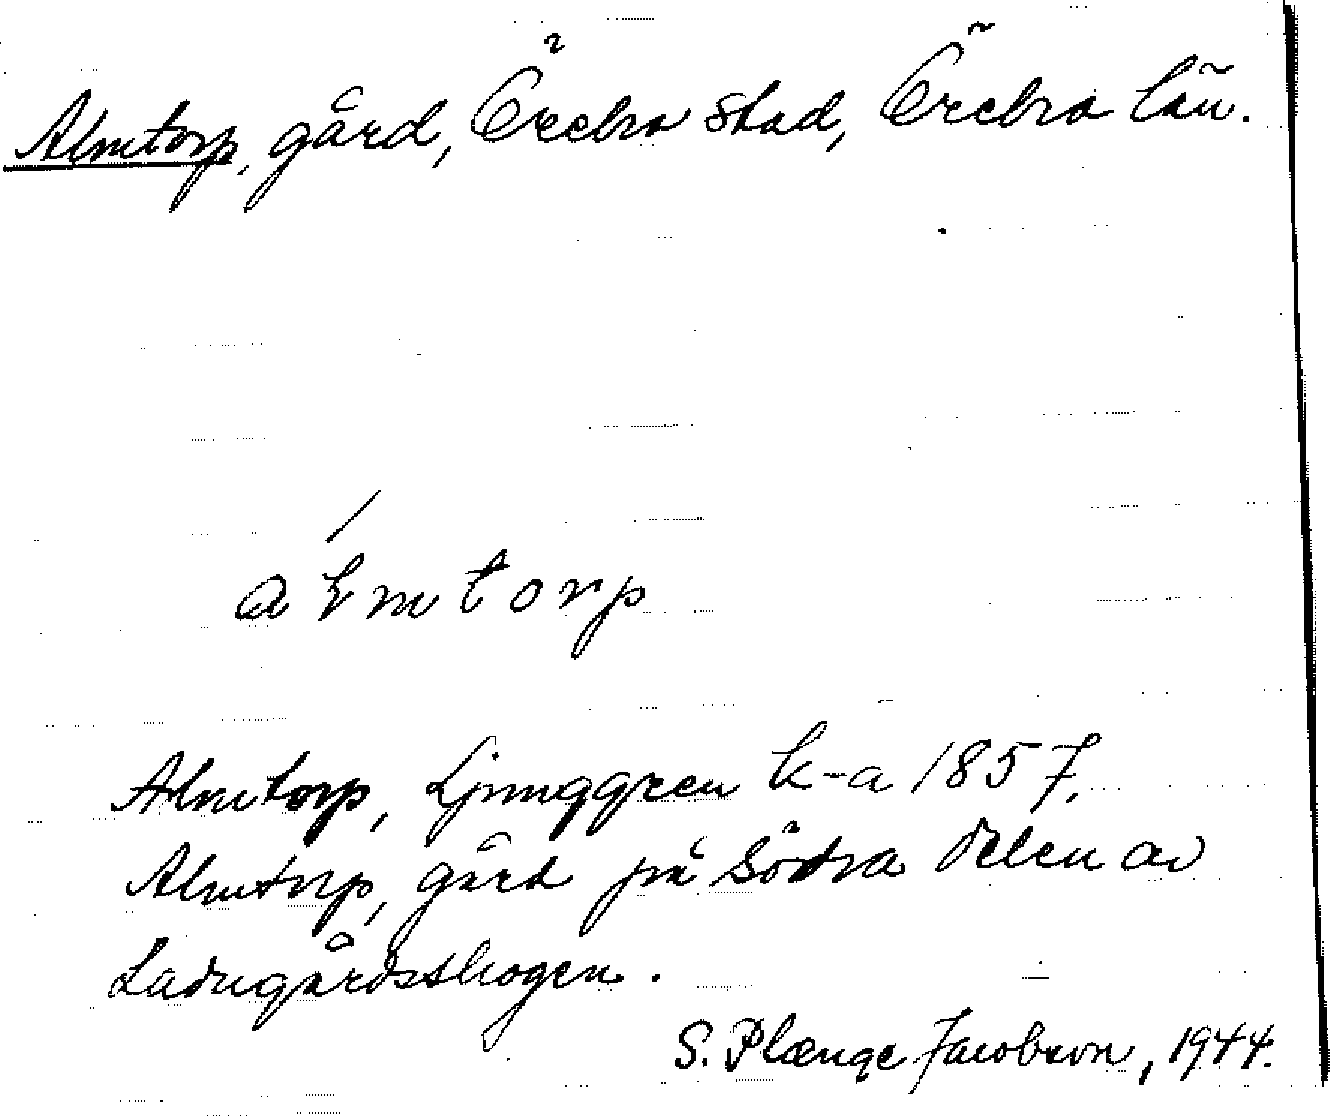 Almtorp, gård, Örebro stad, Örebro län.
almtorp
Almtorp, Ljunggren k-a 1857.
Almtorp, gård på södra delen av
Ladugårdsskogen.
S. Plænge Jacobson, 1944.